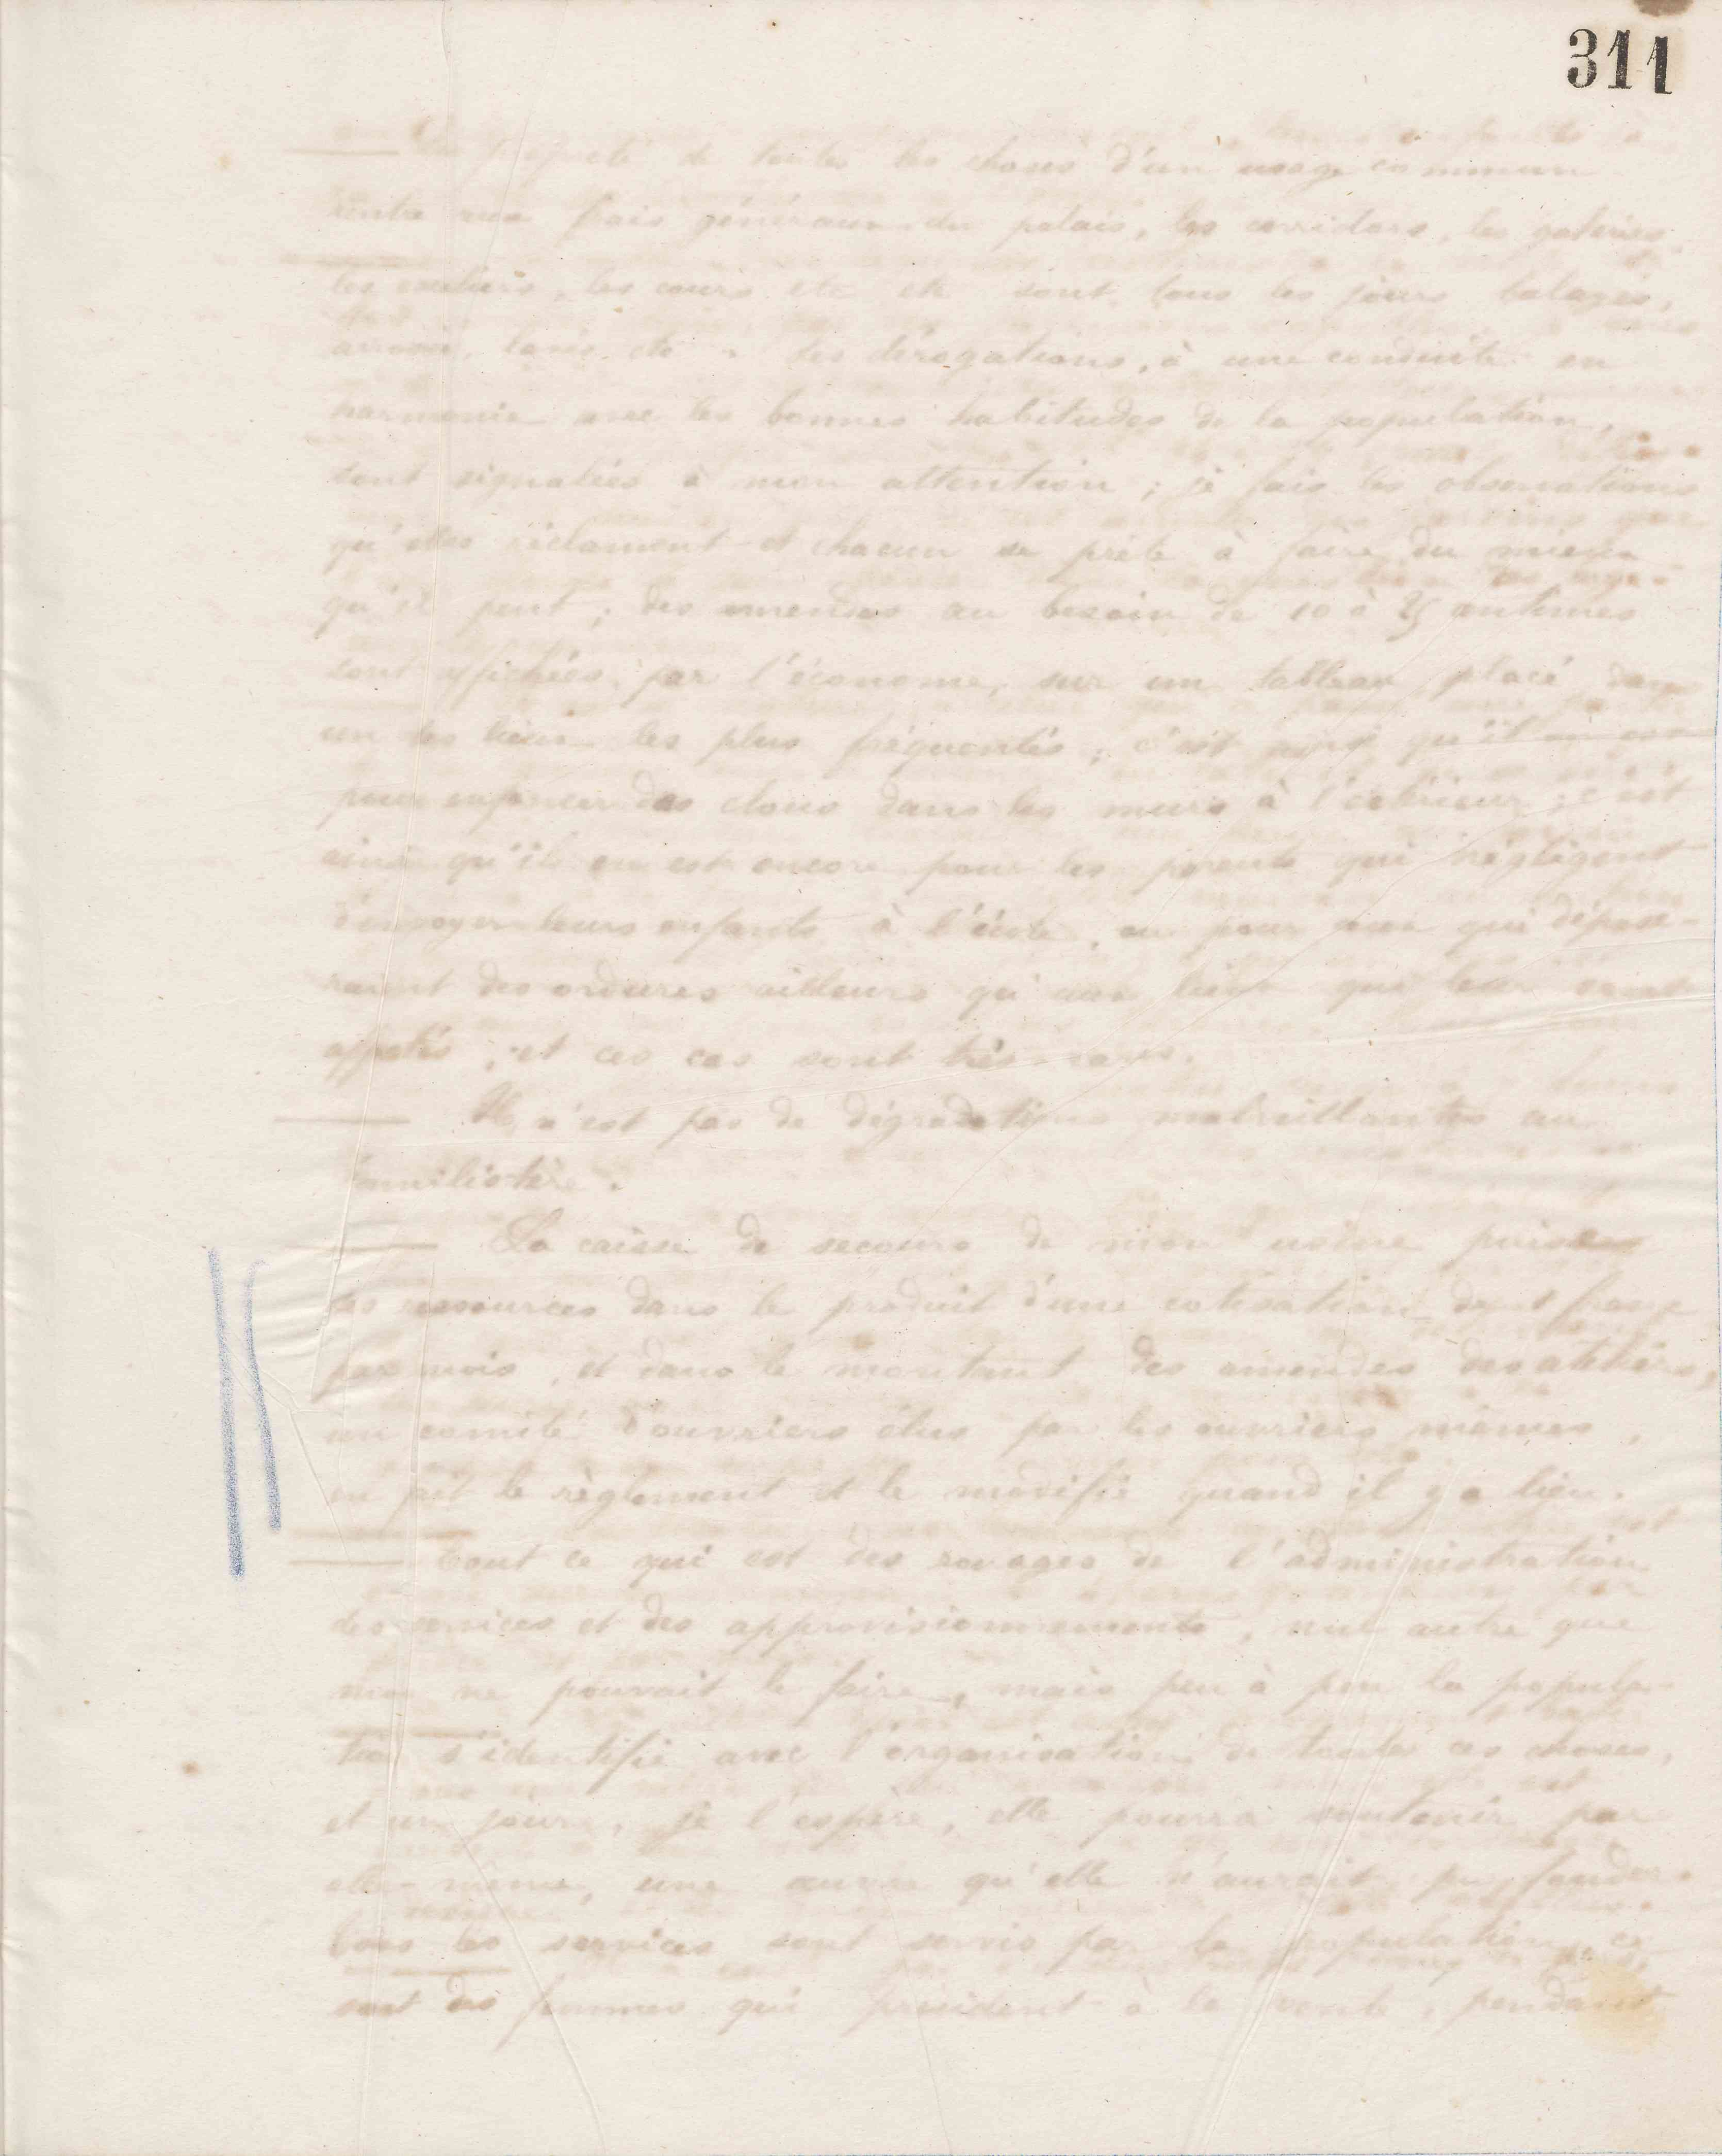 311
La propreté de toutes les choses d'un usage commun
rentre aux frais généraux du palais, les corridors, les galeries,
les escaliers, les cours etc etc sont tous les jours balayés,
arrosés, lavés etc. Les dérogations, à une conduite en
harmonie avec les bonnes habitudes de la population,
sont signalées à mon attention ; je fais les observations
qu'elles réclament et chacun se prête à faire du mieux
qu'il peut ; des amendes au besoin de 10 à 25 centimes
sont affichées, par l'économe, sur un tableau placé dans
un des lieux les plus fréquentés ; c'est ainsi qu'il en est
pour enfoncer des clous dans les murs à l'extérieur ; c'est
ainsi qu'il en est encore pour les parents qui négligent
d'envoyer leurs enfants à l'école, ou pour ceux qui dépose-
raient des ordures ailleurs qu'aux lieux qui leur sont
affectés, et ces cas sont très-rares.
Il n'est pas de dégradations malveillantes au
Familistère.
La caisse de secours de mon usine puise
ses ressources dans le produit d'une cotisation de 1 franc
par mois, et dans le montant des amendes des ateliers,
un comité d'ouvriers élus par les ouvriers mêmes,
en fait le règlement et le modifie quand il y a lieu.
Tout ce qui est des rouages de l'administration
des services et des approvisionnements, nul autre que
moi ne pouvait le faire, mais peu à peu la popula-
tion s'identifie avec l'organisation de toutes ces choses,
et un jour, je l'espère, elle pourra soutenir par
elle-même, une œuvre qu'elle n'aurait pu fonder.
Tous les services sont servis par la population, ce
sont des femmes qui président à la vente, pendant